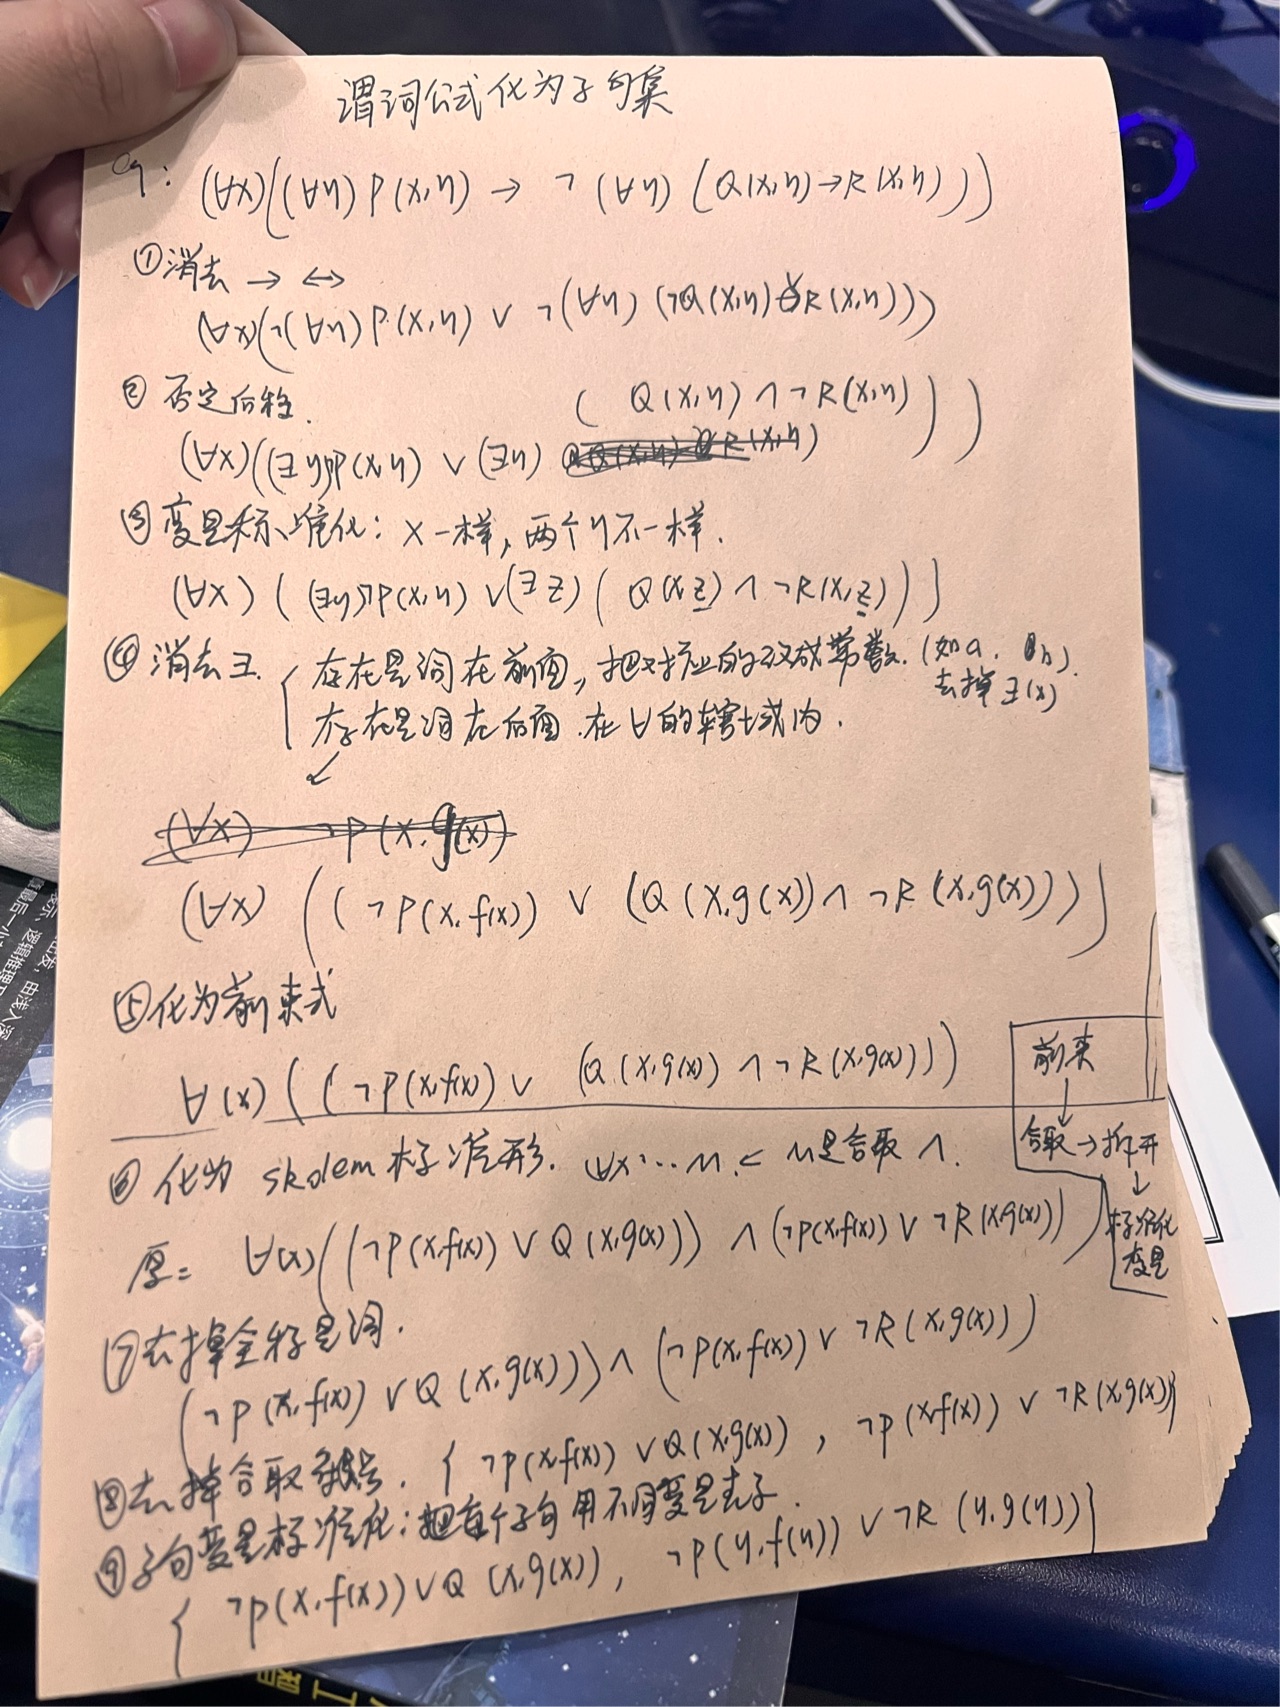 谓词公式化为子句集
eg: (∀x)((∀y) P(x,y) → ¬(∀y) (Q(x,y)→R(x,y)))
①消去 → ↔
(∀x)(¬(∀y)P(x,y) ∨ ¬(∀y) (¬Q(x,y)∨R(x,y)))
② 否定后移.
( Q(x,y) ∧¬R(x,y) ) )
(∀x)((∃y)¬P(x,y) ∨ (∃y)
③变量标准化: x一样, 两个y不一样.
(∀x) ( (∃y)¬P(x,y) ∨(∃z) ( Q(x,z) ∧ ¬R(x,z) ) )
④ 消去∃. { 存在量词在前面, 把对应的改成常数. (如a, b).
去掉∃(x)
存在量词在后面.在∀的辖域内.
↙
(∀x) ¬P(x,g(x))
(∀x) ( (¬P(x,f(x)) ∨ (Q(x,g(x))∧ ¬R(x,g(x))))
⑤化为前束式
∀(x) ( (¬P(x,f(x)) ∨ (Q(x,g(x)) ∧ ¬R(x,g(x))))
前束
↓
合取→拆开
↓
标准化
变量
⑥ 化为 skolem 标准形. ∀x…M. < M是合取 ∧.
原= ∀(x)((¬P(x,f(x)) ∨ Q(x,g(x))) ∧ (¬P(x,f(x)) ∨ ¬R(x,g(x))))
⑦去掉全称量词.
(¬P(x,f(x)) ∨ Q(x,g(x))) ∧ (¬P(x,f(x)) ∨ ¬R(x,g(x)))
⑧去掉合取符号. { ¬P(x,f(x)) ∨Q(x,g(x)) , ¬P(x,f(x)) ∨ ¬R(x,g(x))}
⑨子句变量标准化: 把每个子句用不同变量表示.
{ ¬P(x,f(x)) ∨Q (x,g(x)), ¬P(y,f(y)) ∨ ¬R (y,g(y))}